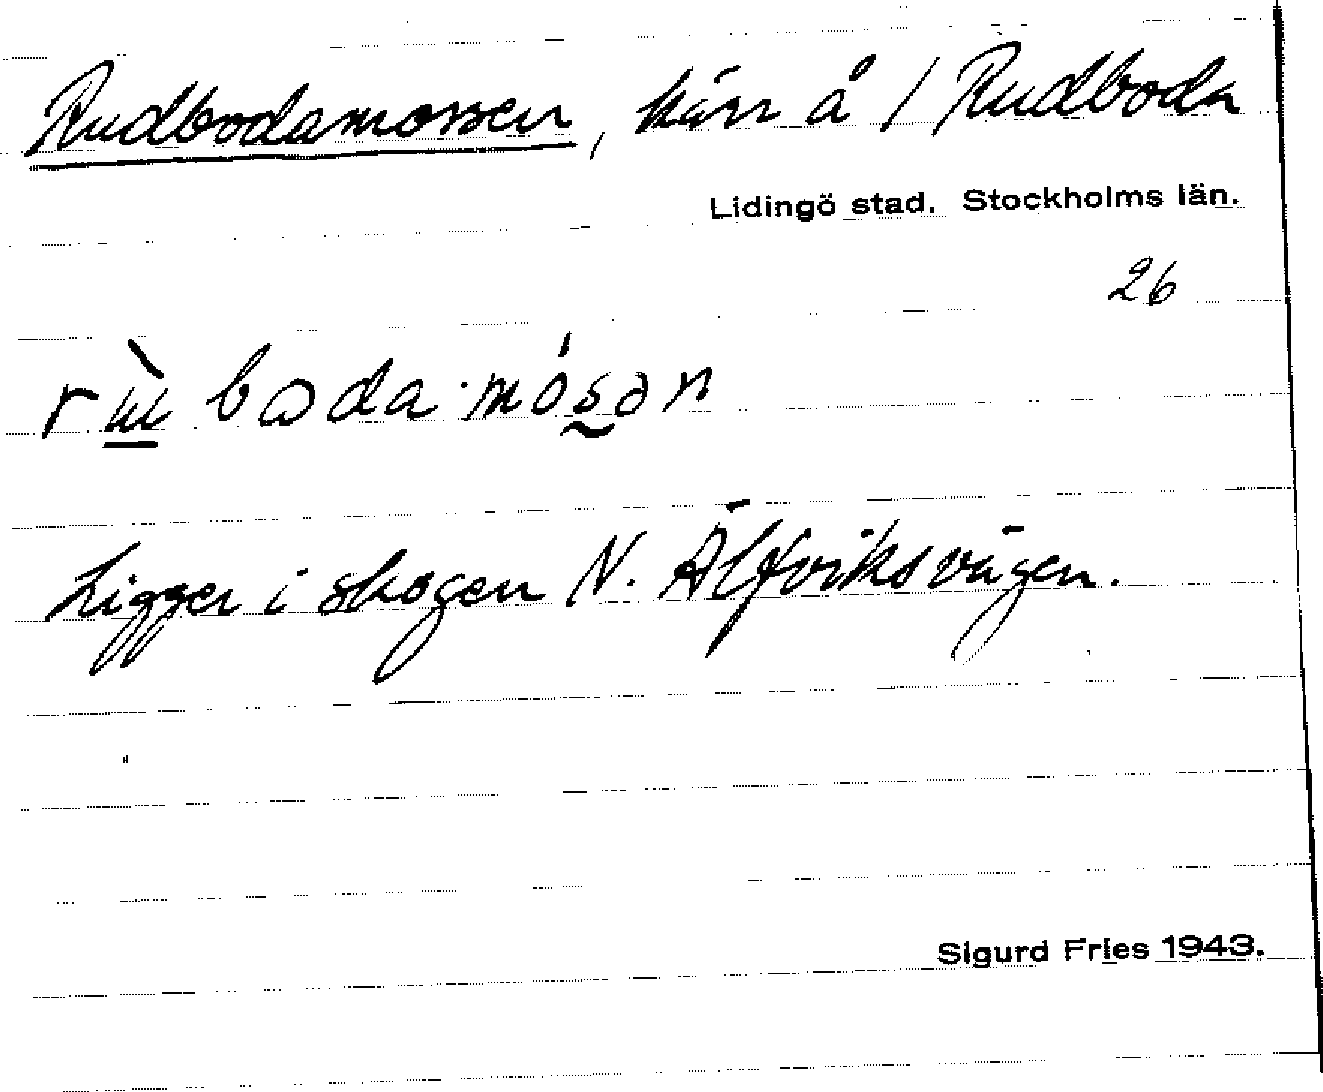 Rudbodamossen, kärr å 1 Rudboda
Lidingö stad. Stockholms län.
26
Ligger i skogen N. Älfviksvägen.
Sigurd Fries 1943.